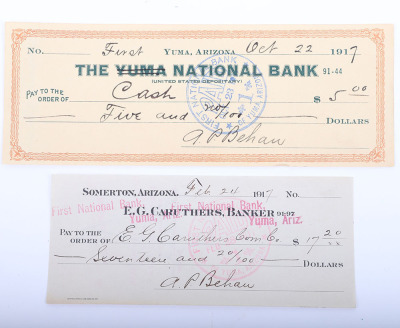 No. First Yuma, Arizona Oct 22 1917
THE YUMA NATIONAL BANK 91-44
(UNITED STATES DEPOSITARY)
PAY TO THE ORDER OF Cash $ 5 00
Five and no/100 DOLLARS
A P Behan
FIRST NATIONAL BANK
PAID
1
YUMA, ARIZONA
SOMERTON, ARIZONA. Feb 24 1917 No.
First National Bank, Yuma, Ariz.
First National Bank, Yuma, Ariz.
E. G. CARUTHERS, BANKER 91-97
PAY TO THE ORDER OF E. G. Caruthers Com Co. $ 17 20
Seventeen and 20/100 DOLLARS
A. P. Behan